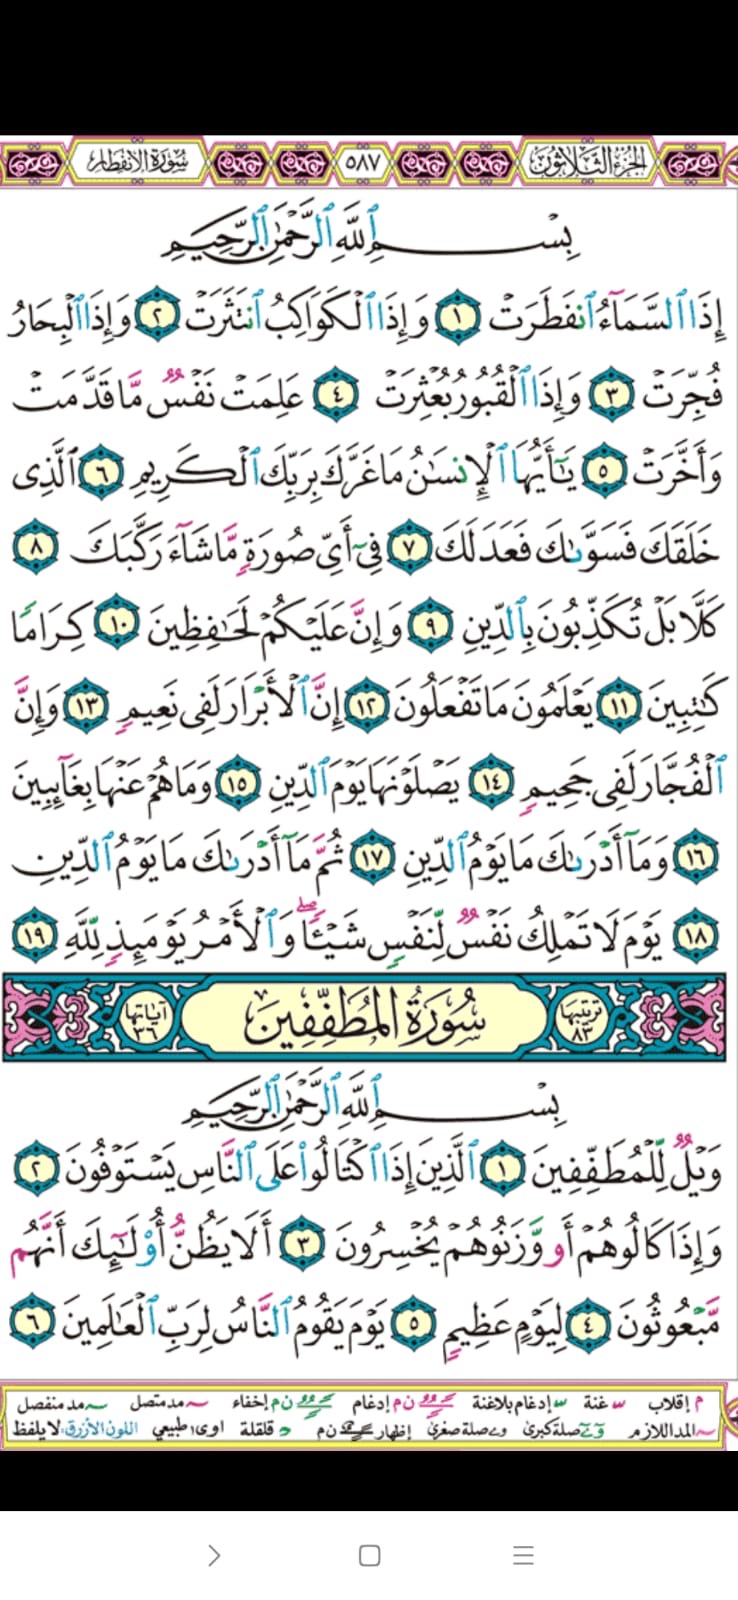 الجزء الثلاثون ٥٨٧ سورة الانفطار
بِسْمِ ٱللَّهِ ٱلرَّحْمَٰنِ ٱلرَّحِيمِ
إِذَا ٱلسَّمَآءُ ٱنفَطَرَتْ ١ وَإِذَا ٱلْكَوَاكِبُ ٱنتَثَرَتْ ٢ وَإِذَا ٱلْبِحَارُ
فُجِّرَتْ ٣ وَإِذَا ٱلْقُبُورُ بُعْثِرَتْ ٤ عَلِمَتْ نَفْسٌ مَّا قَدَّمَتْ
وَأَخَّرَتْ ٥ يَٰٓأَيُّهَا ٱلْإِنسَٰنُ مَا غَرَّكَ بِرَبِّكَ ٱلْكَرِيمِ ٦ ٱلَّذِى
خَلَقَكَ فَسَوَّىٰكَ فَعَدَلَكَ ٧ فِىٓ أَىِّ صُورَةٍ مَّا شَآءَ رَكَّبَكَ ٨
كَلَّا بَلْ تُكَذِّبُونَ بِٱلدِّينِ ٩ وَإِنَّ عَلَيْكُمْ لَحَٰفِظِينَ ١٠ كِرَامًا
كَٰتِبِينَ ١١ يَعْلَمُونَ مَا تَفْعَلُونَ ١٢ إِنَّ ٱلْأَبْرَارَ لَفِى نَعِيمٍ ١٣ وَإِنَّ
ٱلْفُجَّارَ لَفِى جَحِيمٍ ١٤ يَصْلَوْنَهَا يَوْمَ ٱلدِّينِ ١٥ وَمَا هُمْ عَنْهَا بِغَآئِبِينَ
١٦ وَمَآ أَدْرَىٰكَ مَا يَوْمُ ٱلدِّينِ ١٧ ثُمَّ مَآ أَدْرَىٰكَ مَا يَوْمُ ٱلدِّينِ
١٨ يَوْمَ لَا تَمْلِكُ نَفْسٌ لِّنَفْسٍ شَيْـًٔا ۖ وَٱلْأَمْرُ يَوْمَئِذٍ لِّلَّهِ ١٩
ترتيبها ٨٣ سُورَةُ المُطَفِّفِينَ آياتها ٣٦
بِسْمِ ٱللَّهِ ٱلرَّحْمَٰنِ ٱلرَّحِيمِ
وَيْلٌ لِّلْمُطَفِّفِينَ ١ ٱلَّذِينَ إِذَا ٱكْتَالُوا۟ عَلَى ٱلنَّاسِ يَسْتَوْفُونَ ٢
وَإِذَا كَالُوهُمْ أَو وَّزَنُوهُمْ يُخْسِرُونَ ٣ أَلَا يَظُنُّ أُو۟لَٰٓئِكَ أَنَّهُم
مَّبْعُوثُونَ ٤ لِيَوْمٍ عَظِيمٍ ٥ يَوْمَ يَقُومُ ٱلنَّاسُ لِرَبِّ ٱلْعَٰلَمِينَ ٦
م إقلاب غنة إدغام بلاغنة ن م إدغام ن م إخفاء مد متصل مد منفصل
المد اللازم صلة كبرى صلة صغرى إظهار ن م قلقلة اوى طبيعي اللون الأزرق: لا يلفظ